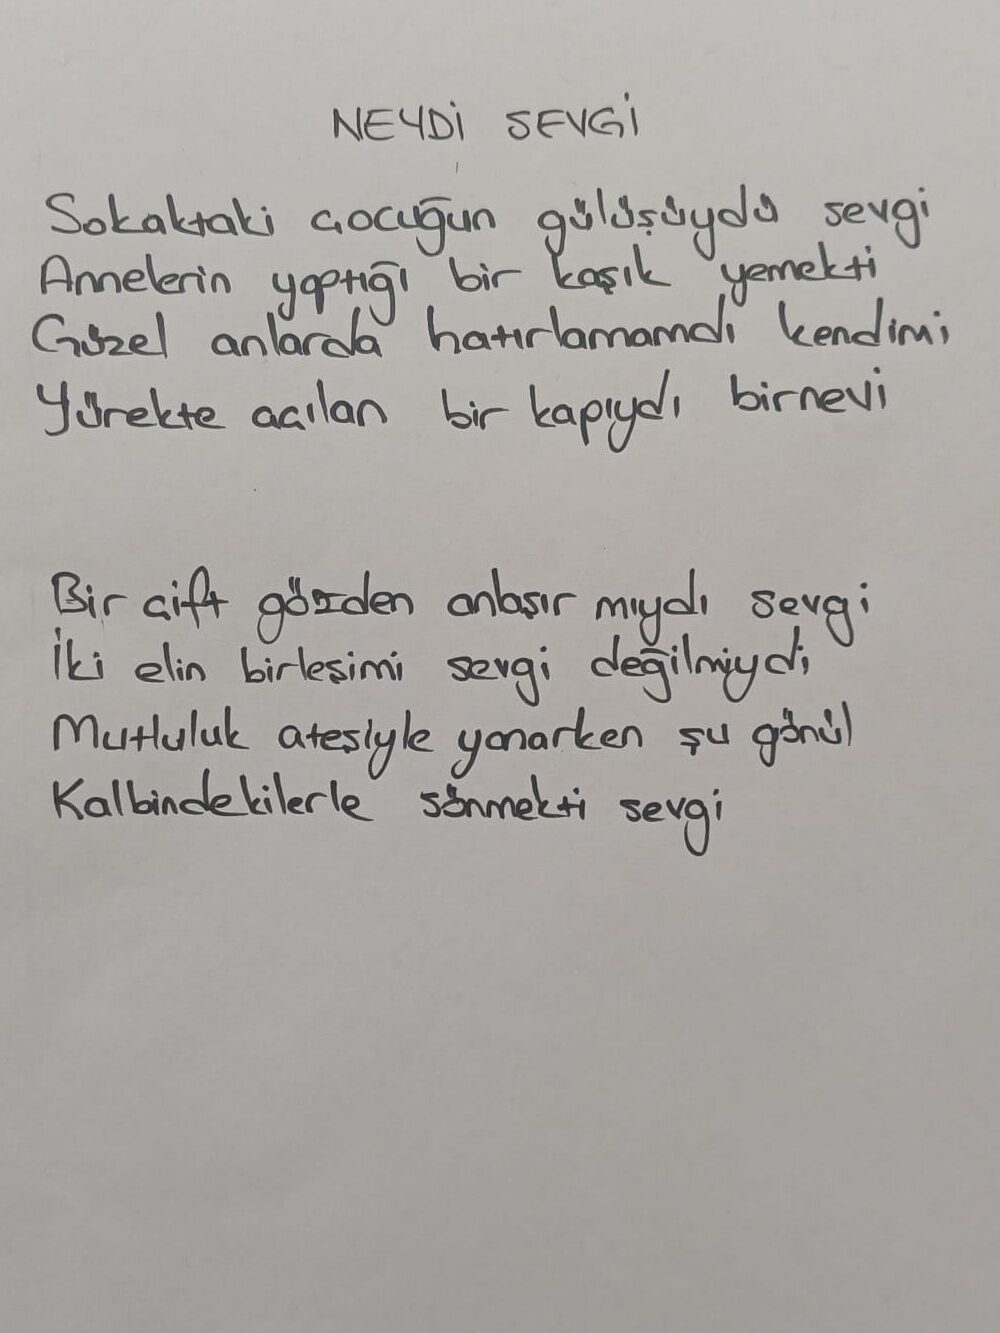 NEYDİ SEVGİ
Sokaktaki çocuğun gülüşüydü sevgi
Annelerin yaptığı bir kaşık yemekti
Güzel anlarda hatırlamamdı kendimi
Yürekte açılan bir kapıydı birnevi
Bir çift gözden anlaşır mıydı sevgi
İki elin birleşimi sevgi değilmiydi
Mutluluk ateşiyle yanarken şu gönül
Kalbindekilerle sönmekti sevgi